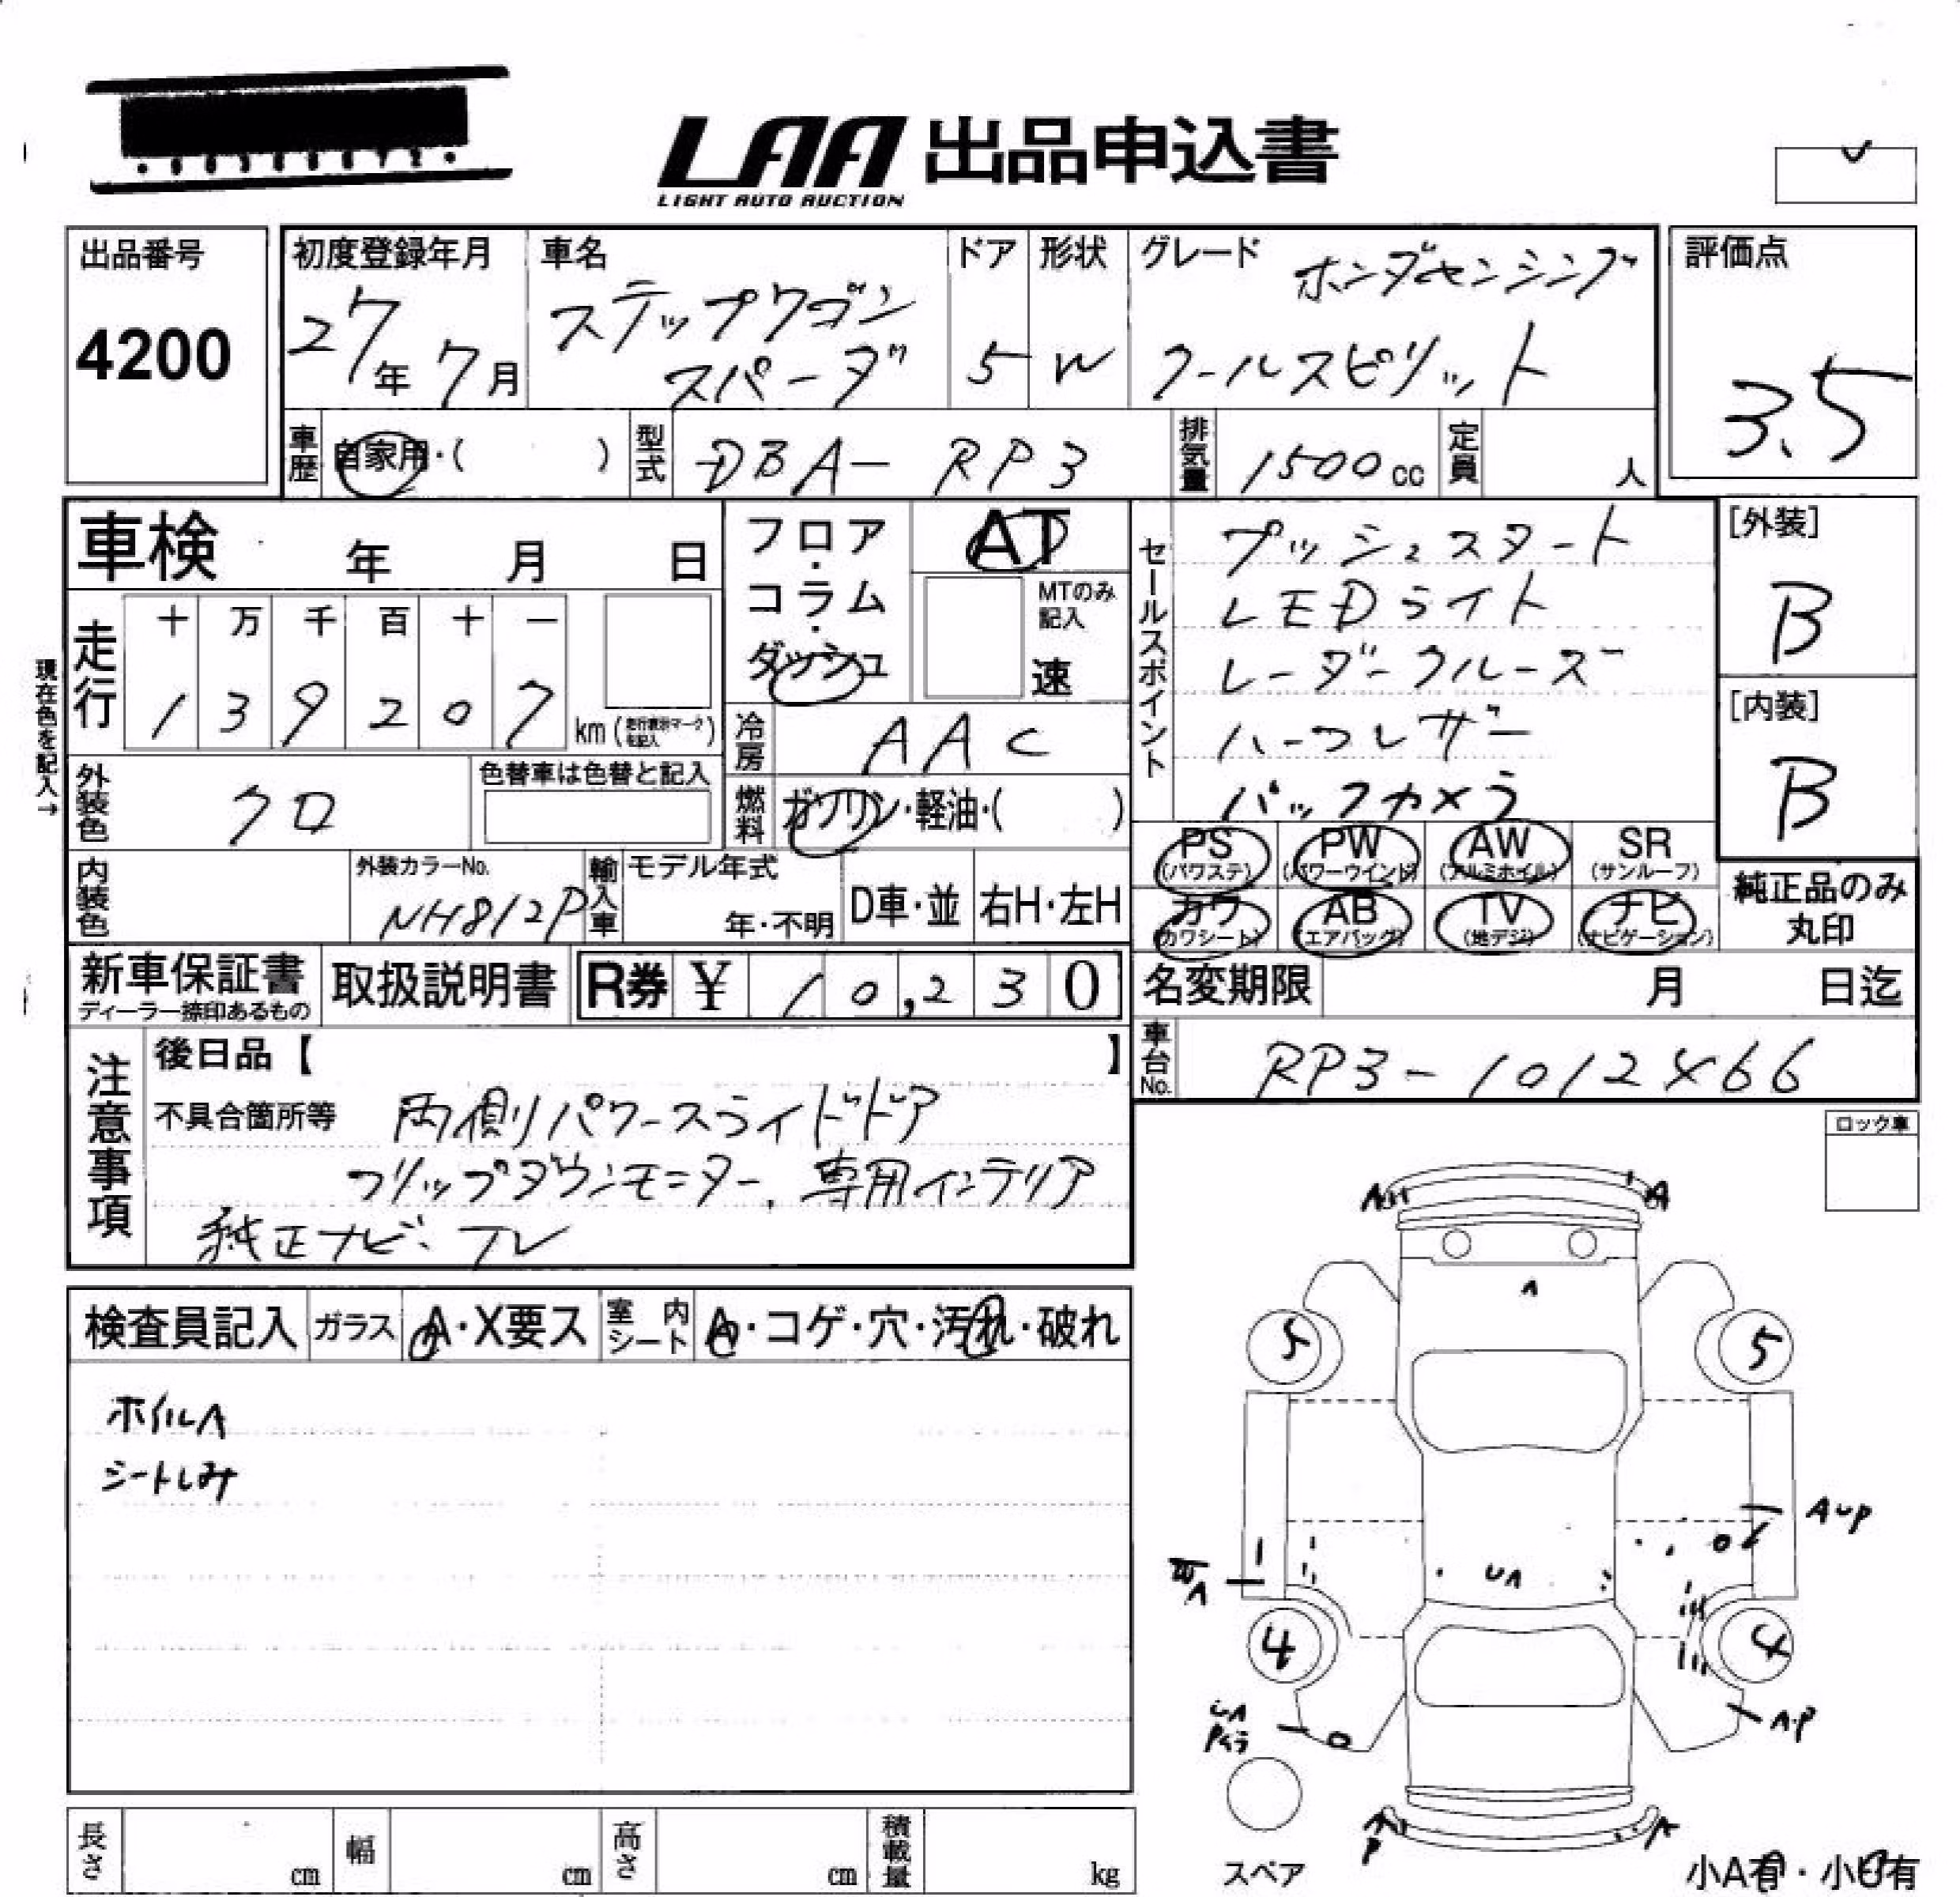 LAA 出品申込書
LIGHT AUTO AUCTION
出品番号
4200
初度登録年月
27年 7月
車名
ステップワゴン
スパーダ
ドア
5
形状
W
グレード
ホンダセンシング
クールスピリット
評価点
3.5
車歴
自家用・( )
型式
DBA- RP3
排気量
1500cc
定員
人
車検 年 月 日
フロア・コラム・ダッシュ
AT
MTのみ
記入
速
セールスポイント
プッシュスタート
LEDライト
レーダークルーズ
ハーフレザー
バックカメラ
[外装]
B
[内装]
B
現在色を記入→
走行
十 万 千 百 十 一
1 3 9 2 0 7
km(走行表示マークを記入)
冷房
AAC
外装色
クロ
色替車は色替と記入
燃料
ガソリン・軽油・( )
PS
(パワステ)
PW
(パワーウインド)
AW
(アルミホイル)
SR
(サンルーフ)
カワ
(カワシート)
AB
(エアバッグ)
TV
(地デジ)
ナビ
(ナビゲーション)
純正品のみ
丸印
内装色
外装カラーNo.
NH812P
輸入車
モデル年式
年・不明
D車・並
右H・左H
新車保証書
ディーラー捺印あるもの
取扱説明書
R券 ¥ 10,230
名変期限 月 日迄
車台No.
RP3-1012X66
注意事項
後日品【 】
不具合箇所等 両側パワースライドドア
フリップダウンモニター、専用インテリア
純正ナビ・TV
ロック車
検査員記入
ガラス
A・X要ス
室内シート
A・コゲ・穴・汚れ・破れ
ホイルA
シートしみ
A A
A
5 5
AUP
UA
A
4 4
UA
A・P
A A
P
スペア
長さ cm
幅 cm
高さ cm
積載量 kg
小A有・小U有